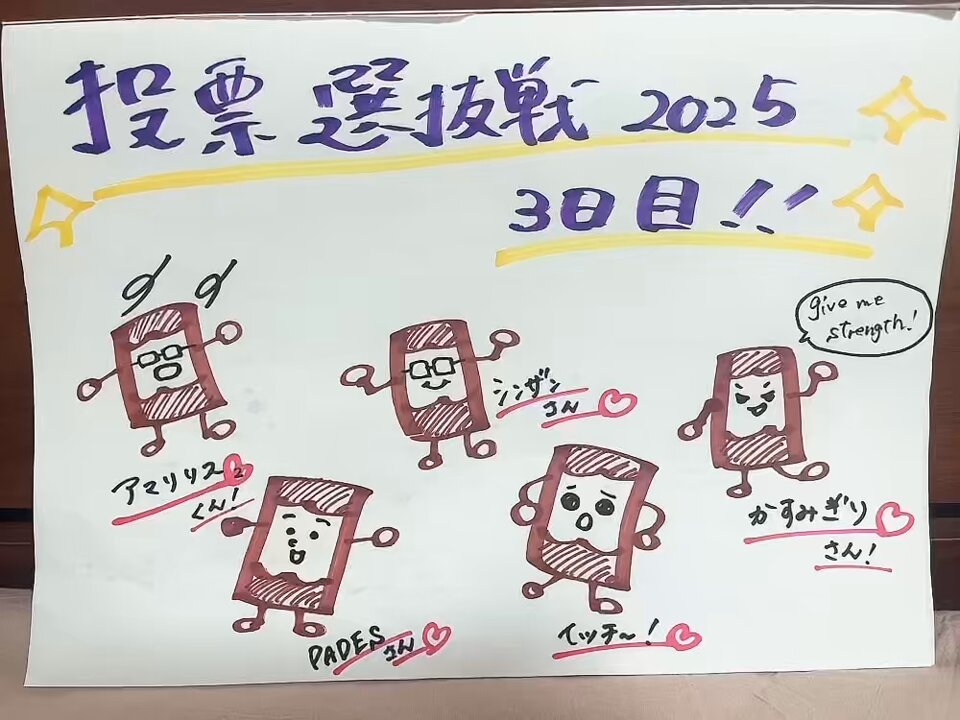 投票選抜戦2025
3日目!!
give me
strength!
アマリリス
くん!
シンザン
さん
かすみぎり
さん!
PADESさん
イッチ～!